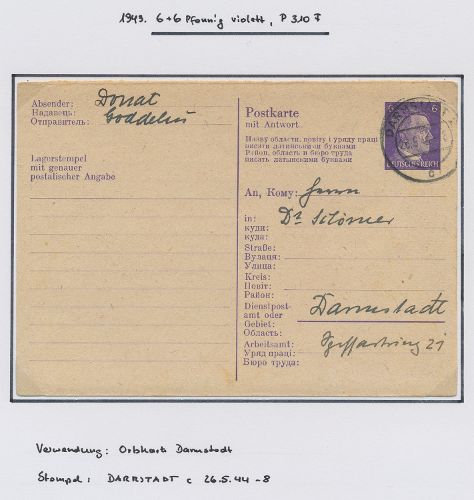 1943. 6+6 Pfennig violett, P 310 F
Absender:
Надавець:
Отправитель:
Donat
Goddelau
Lagerstempel
mit genauer
postalischer Angabe
Postkarte
mit Antwort.
Назву области, повіту і уряду праці
писати латинськими буквами
Район, область и бюро труда
писать латынскими буквами
6
DEUTSCHES REICH
An, Кому: Herrn
in: Dr
куди:
куда:
Straße:
Вулаця:
Улица:
Kreis:
Повіт:
Район:
Dienstpost-
amt oder Darmstadt
Gebiet:
Область:
Arbeitsamt: 21
Уряд праці:
Бюро труда:
Verwendung: Ortskart Darmstadt
Stempel: DARMSTADT c 26.5.44 -8